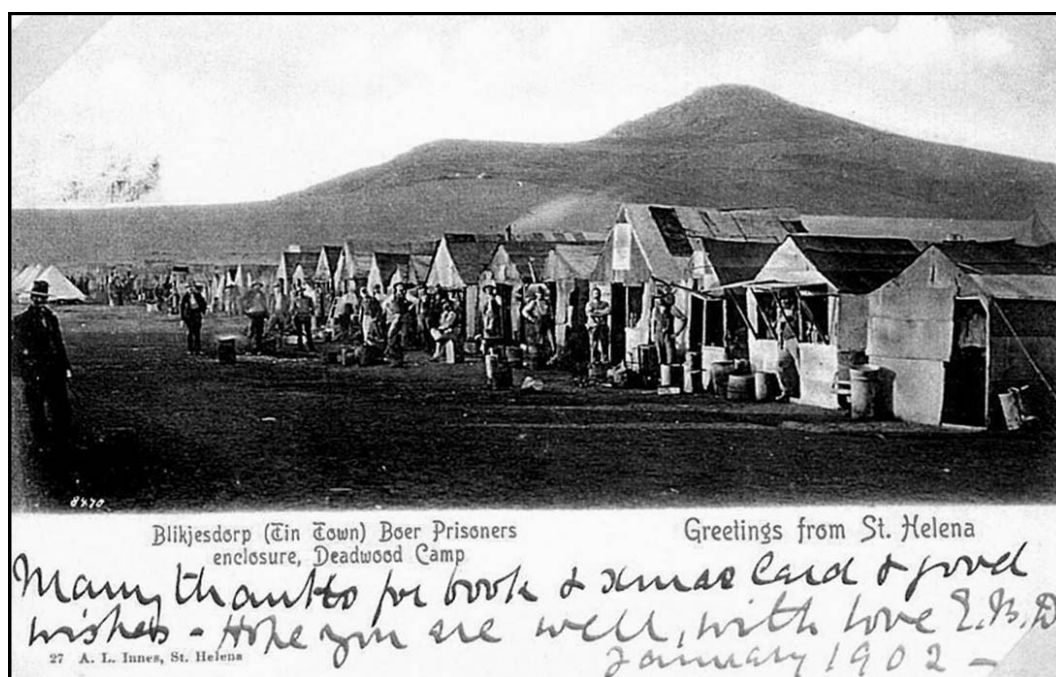 8470
Blikjesdorp (Tin Town) Boer Prisoners
enclosure, Deadwood Camp
Greetings from St. Helena
Many thanks for book & xmas Card & good
wishes - Hope you are well, with love E.B.D
January 1902 -
27 A. L. Innes, St. Helena